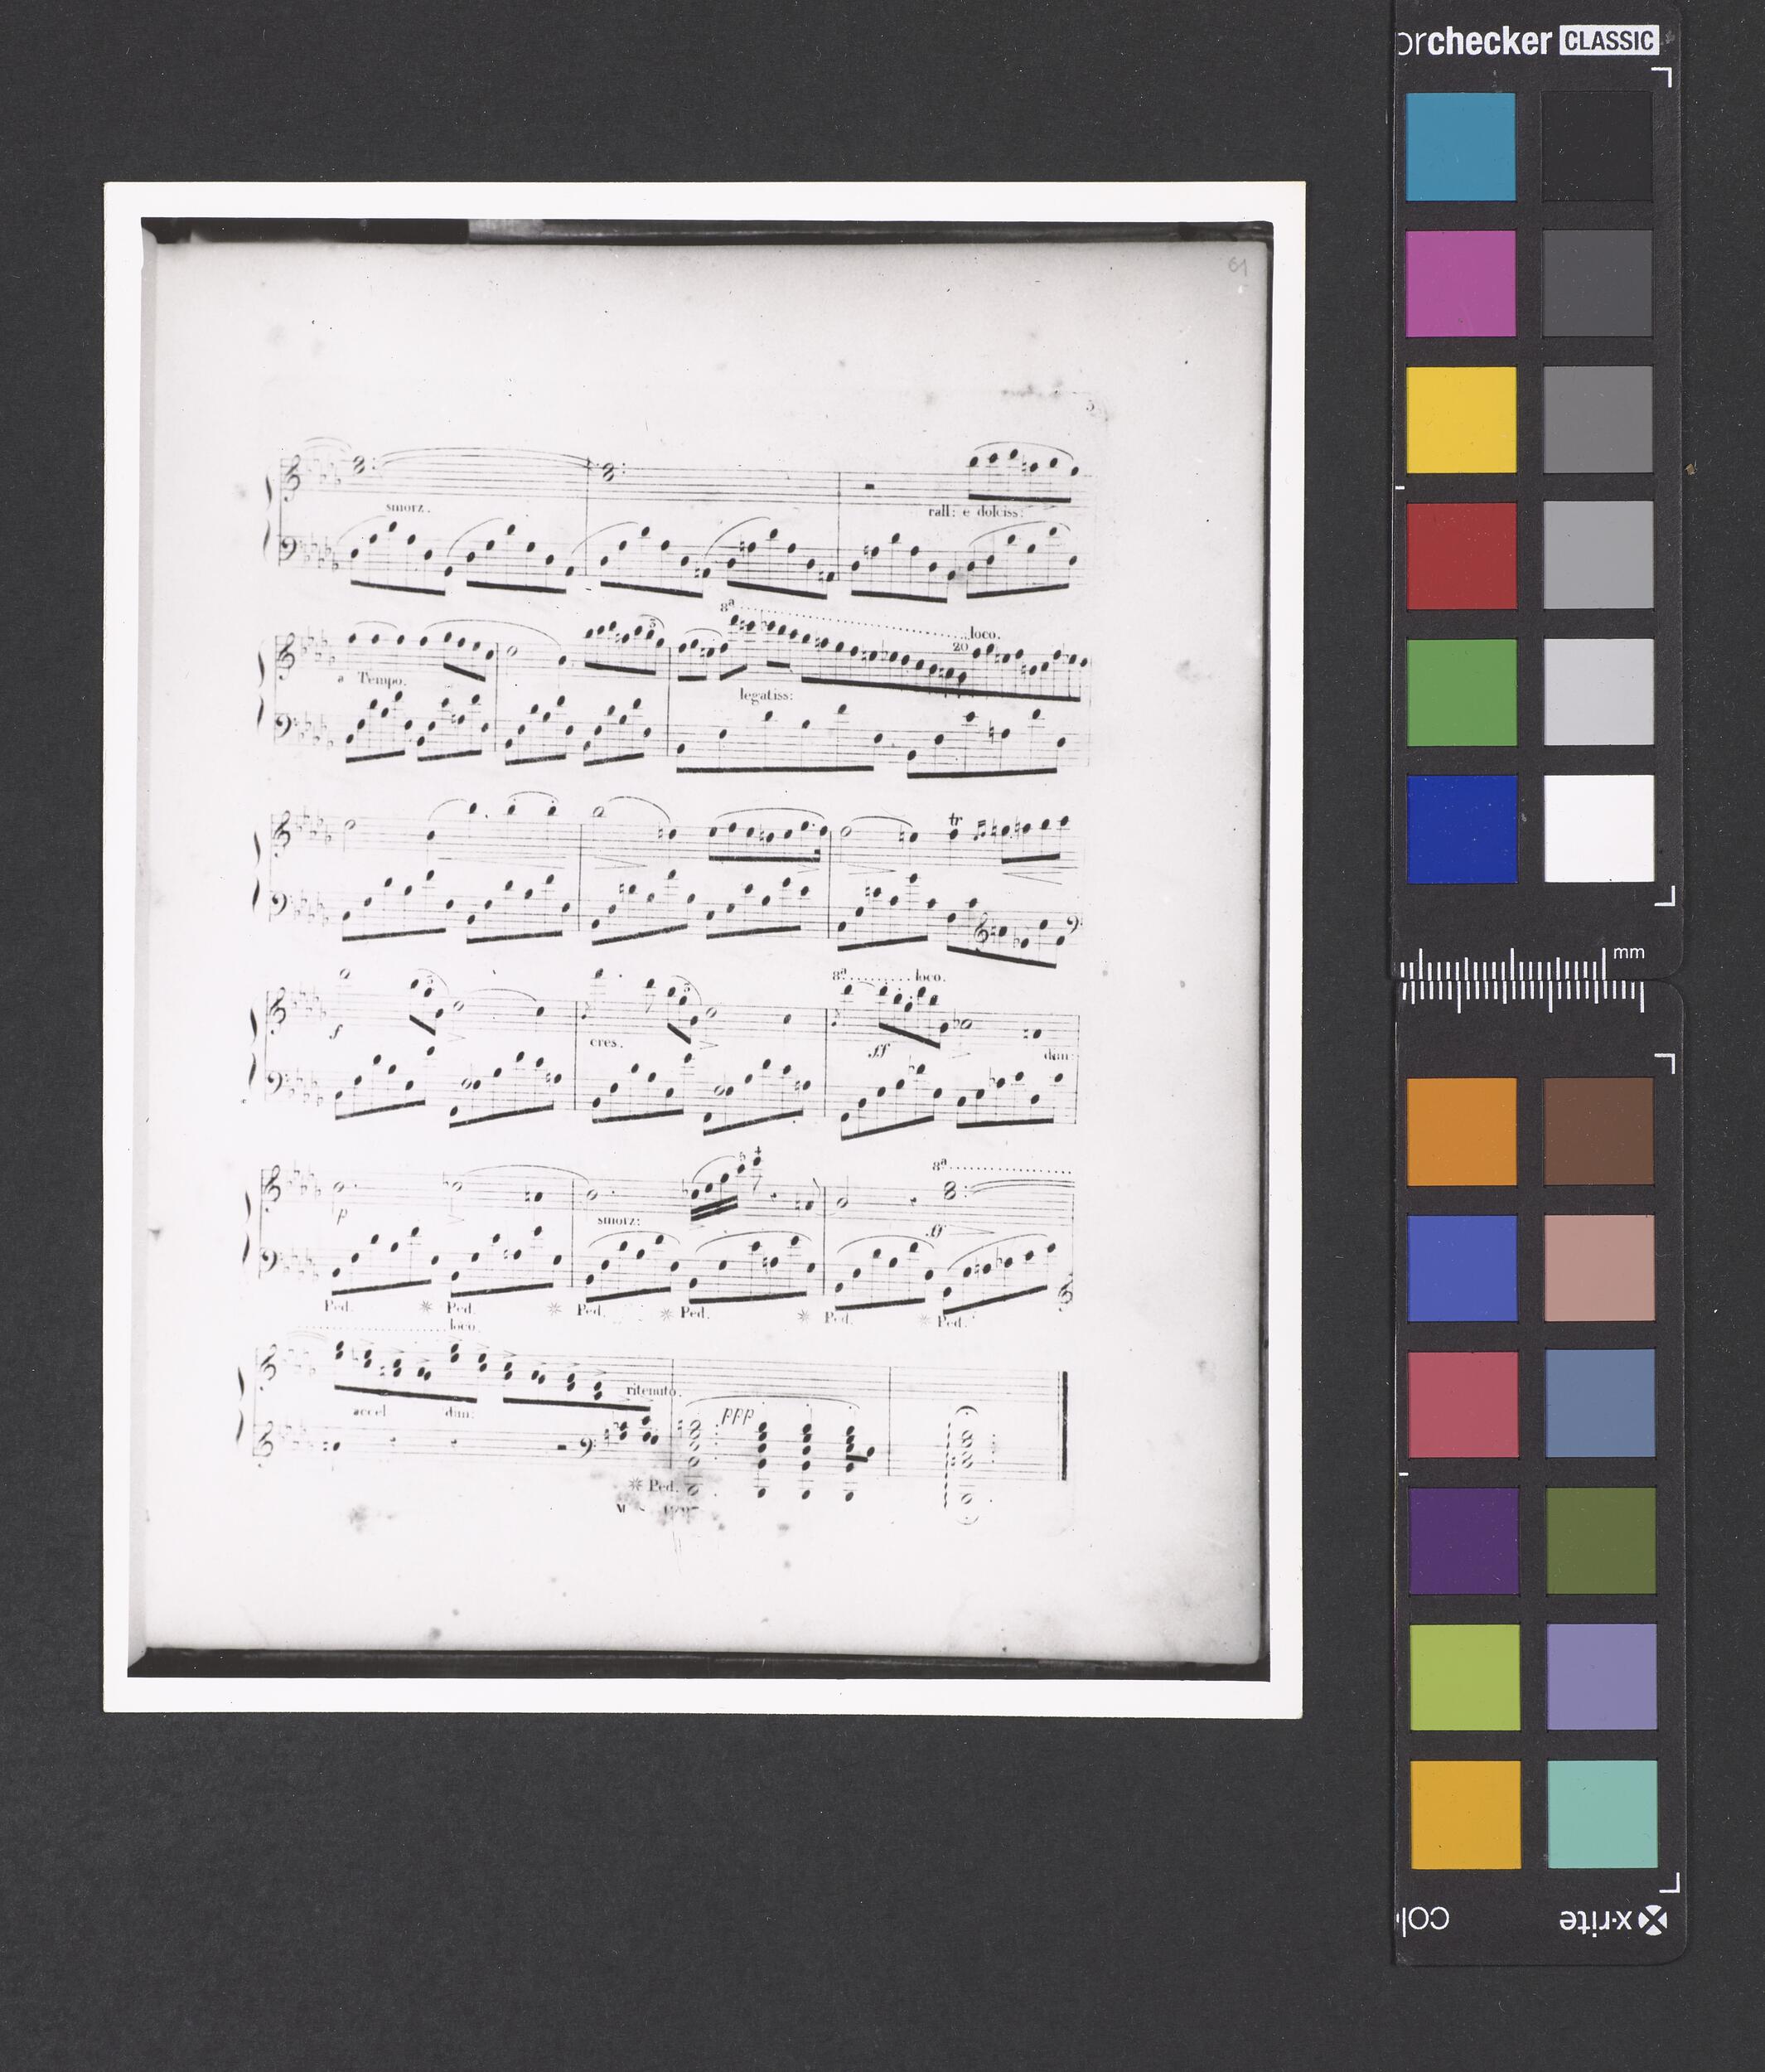 orchecker CLASSIC
61
5
smorz.
rall: e dolciss:
8ª loco.
5
20
a Tempo.
legatiss:
tr
8ª loco.
5
5
f
cres.
ff
dim:
8ª
5 4
p
smorz:
ff
Ped. ✳ Ped. ✳ Ped. ✳ Ped. ✳ Ped. ✳ Ped.
loco
ritenuto.
accel dim:
ppp
✳ Ped.
mm
x-rite
col